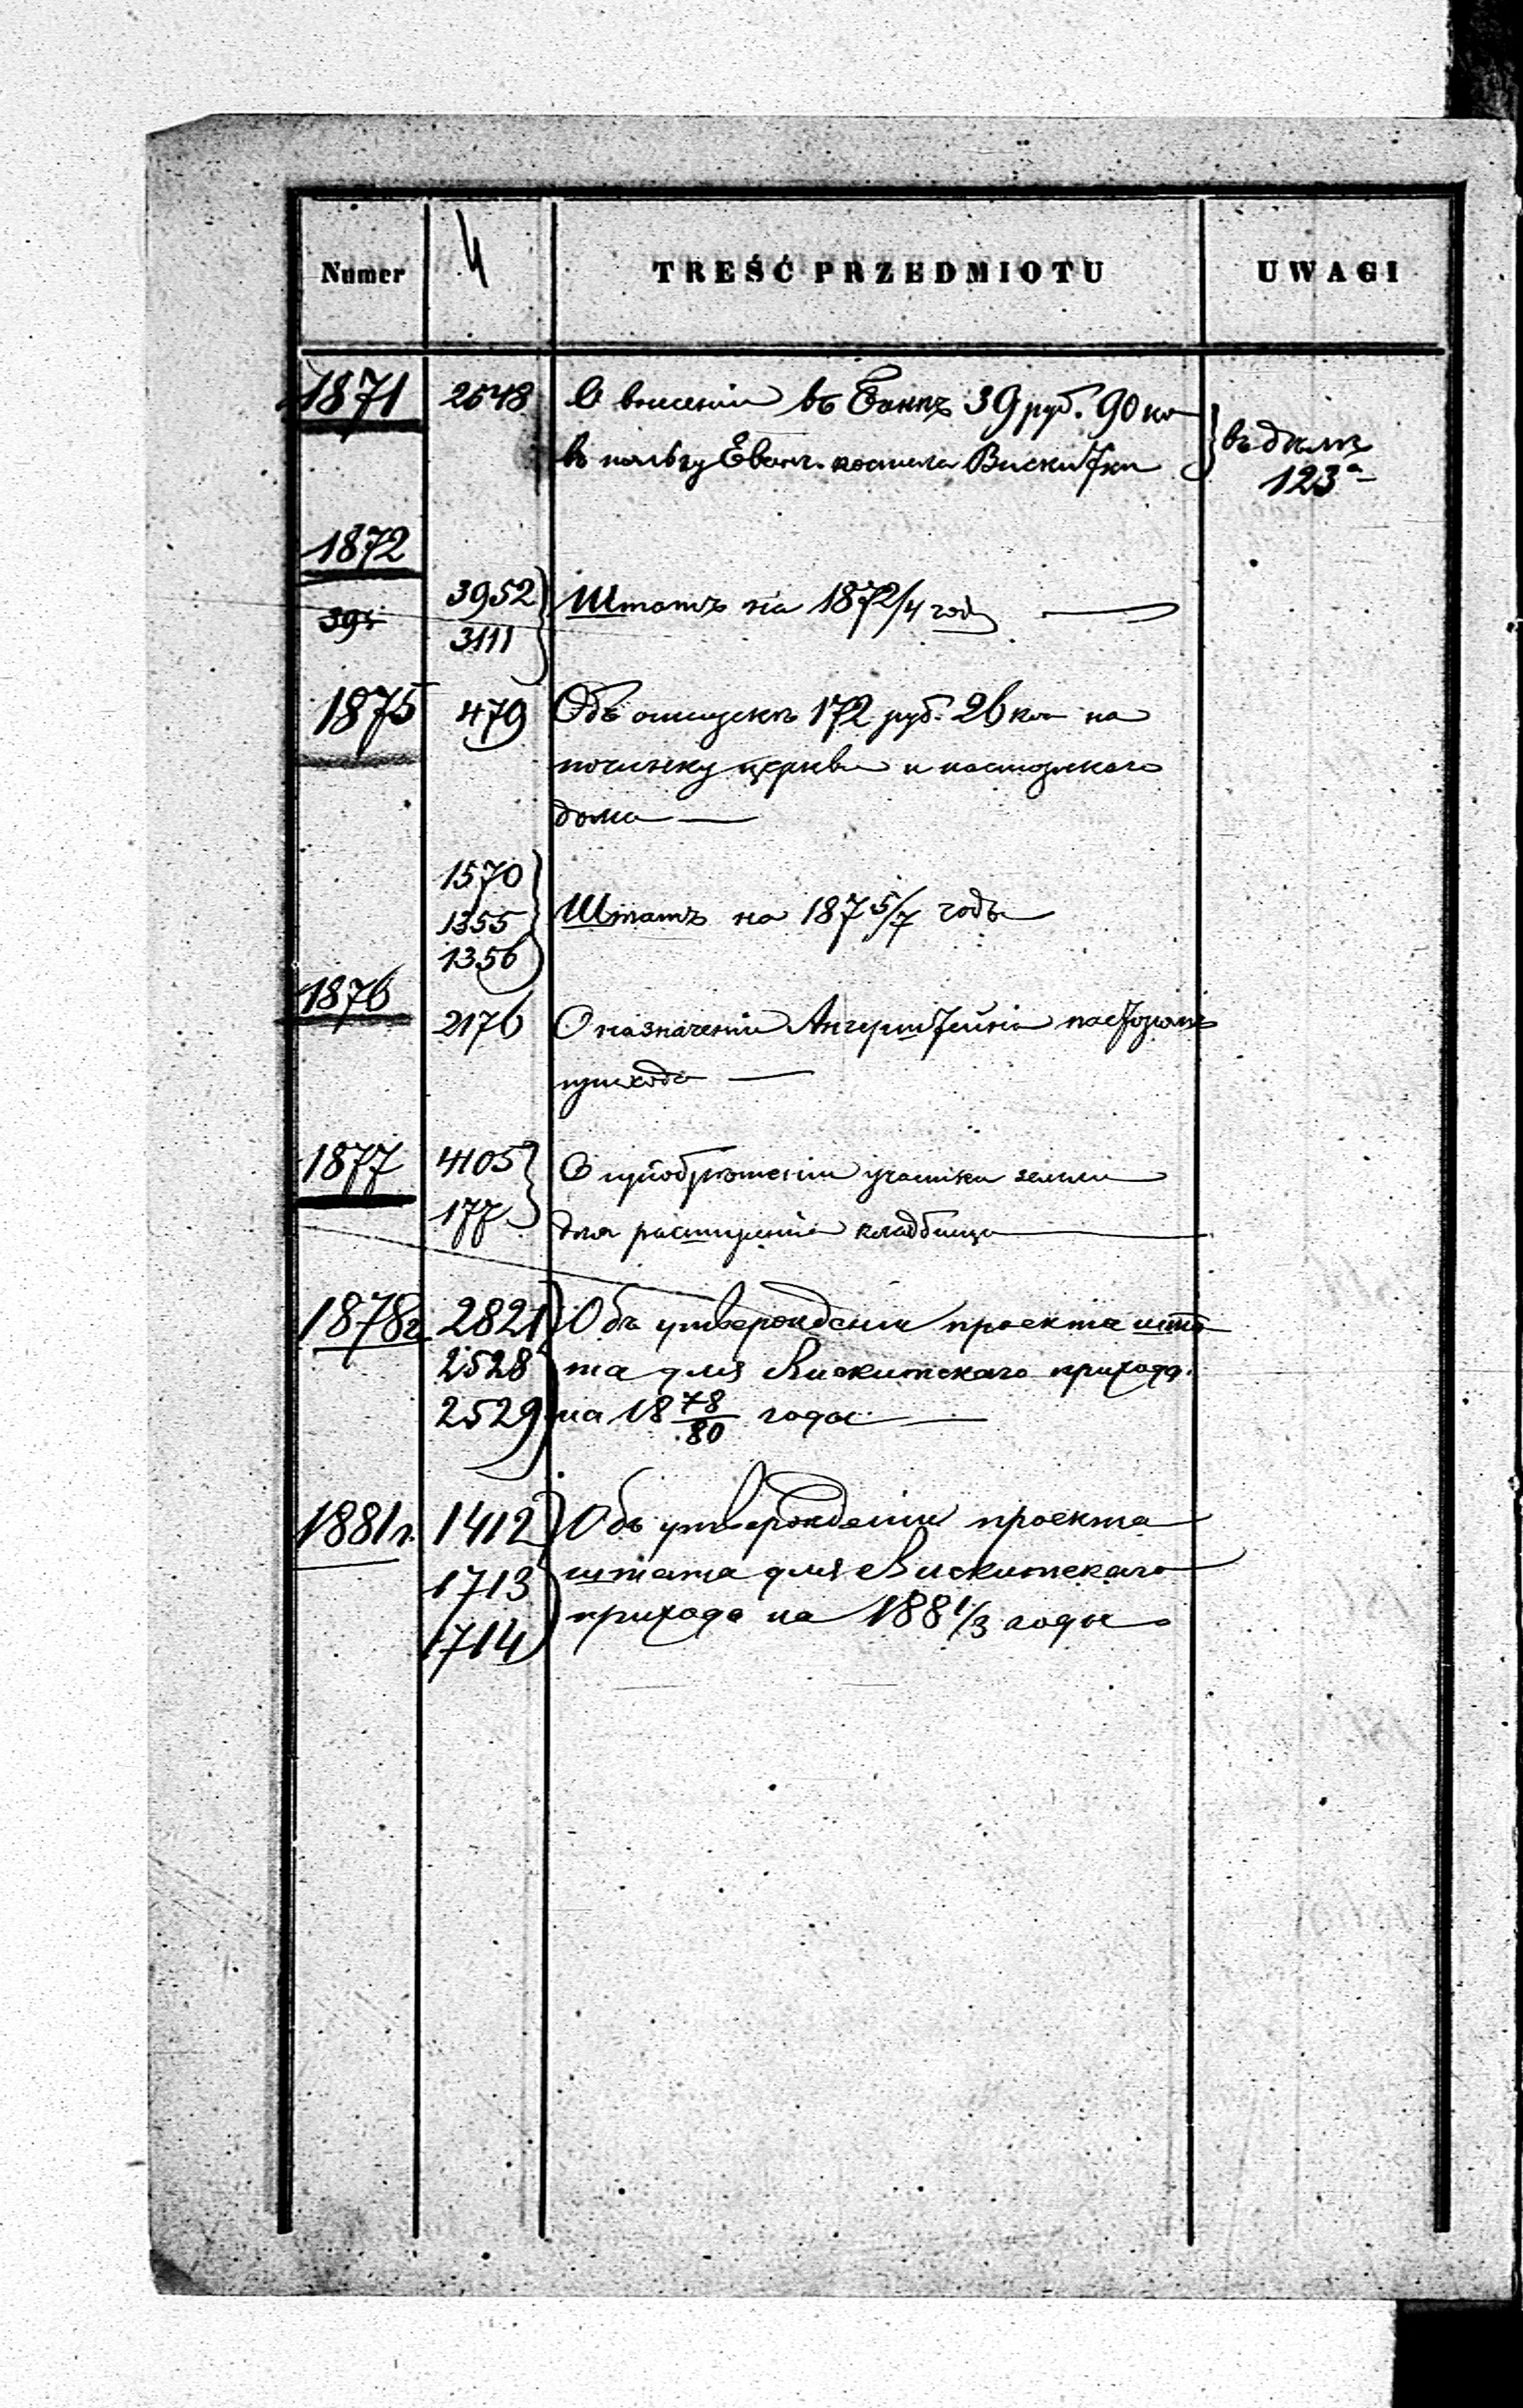 Numer 4 TREŚĆ PRZEDMIOTU UWAGI
1871 2548 О внесеніи въ Банкъ 39 руб. 90 ко
въ пользу Еванг. костела Вискитки
въ дѣлѣ
123а
1872
3952
395
Штатъ на 1872/4 годъ
3111
1875 479 Объ отпускѣ 172 руб. 26 коп на
починку церкви и пасторскаго
дома —
1570
1355 Штатъ на 1875/7 годъ
1356
1876
2176 О назначеніи Ангерштейна пасторомъ
прихода —
1877 4105 О пріобрѣтеніи участка земли
177 для расширенія кладбища
1878г. 2821 Объ утвержденіи проекта шта
2528 та для Вискитскаго прихода
2529 на 18 78/80 годы —
1881г. 1412 Объ утвержденіи проекта
1713 штата для Вискитскаго
1714 прихода на 1881/3 годы